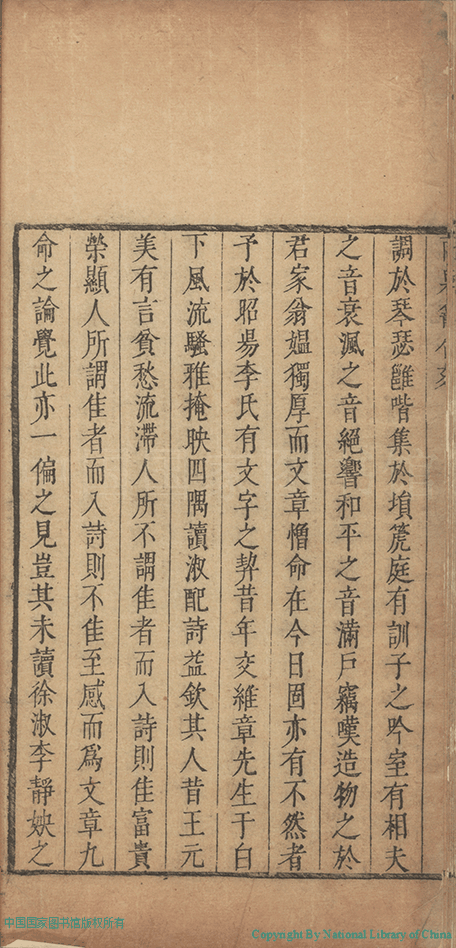 調於琴瑟雝喈集於塤箎庭有訓子之吟室有相夫
之音衰颯之音絕響和平之音滿戸竊嘆造物之於
君家翁媼獨厚而文章憎命在今日固亦有不然者
予於昭場李氏有文字之契昔年交維章先生于白
下風流騷雅掩映四隅讀淑配詩益欽其人昔王元
美有言貧愁流滯人所不謂佳者而入詩則佳富貴
榮顯人所謂佳者而入詩則不佳至感而為文章九
命之論覺此亦一偏之見豈其未讀徐淑李靜姎之
中国国家图书馆版权所有
Copyright By National Library of China